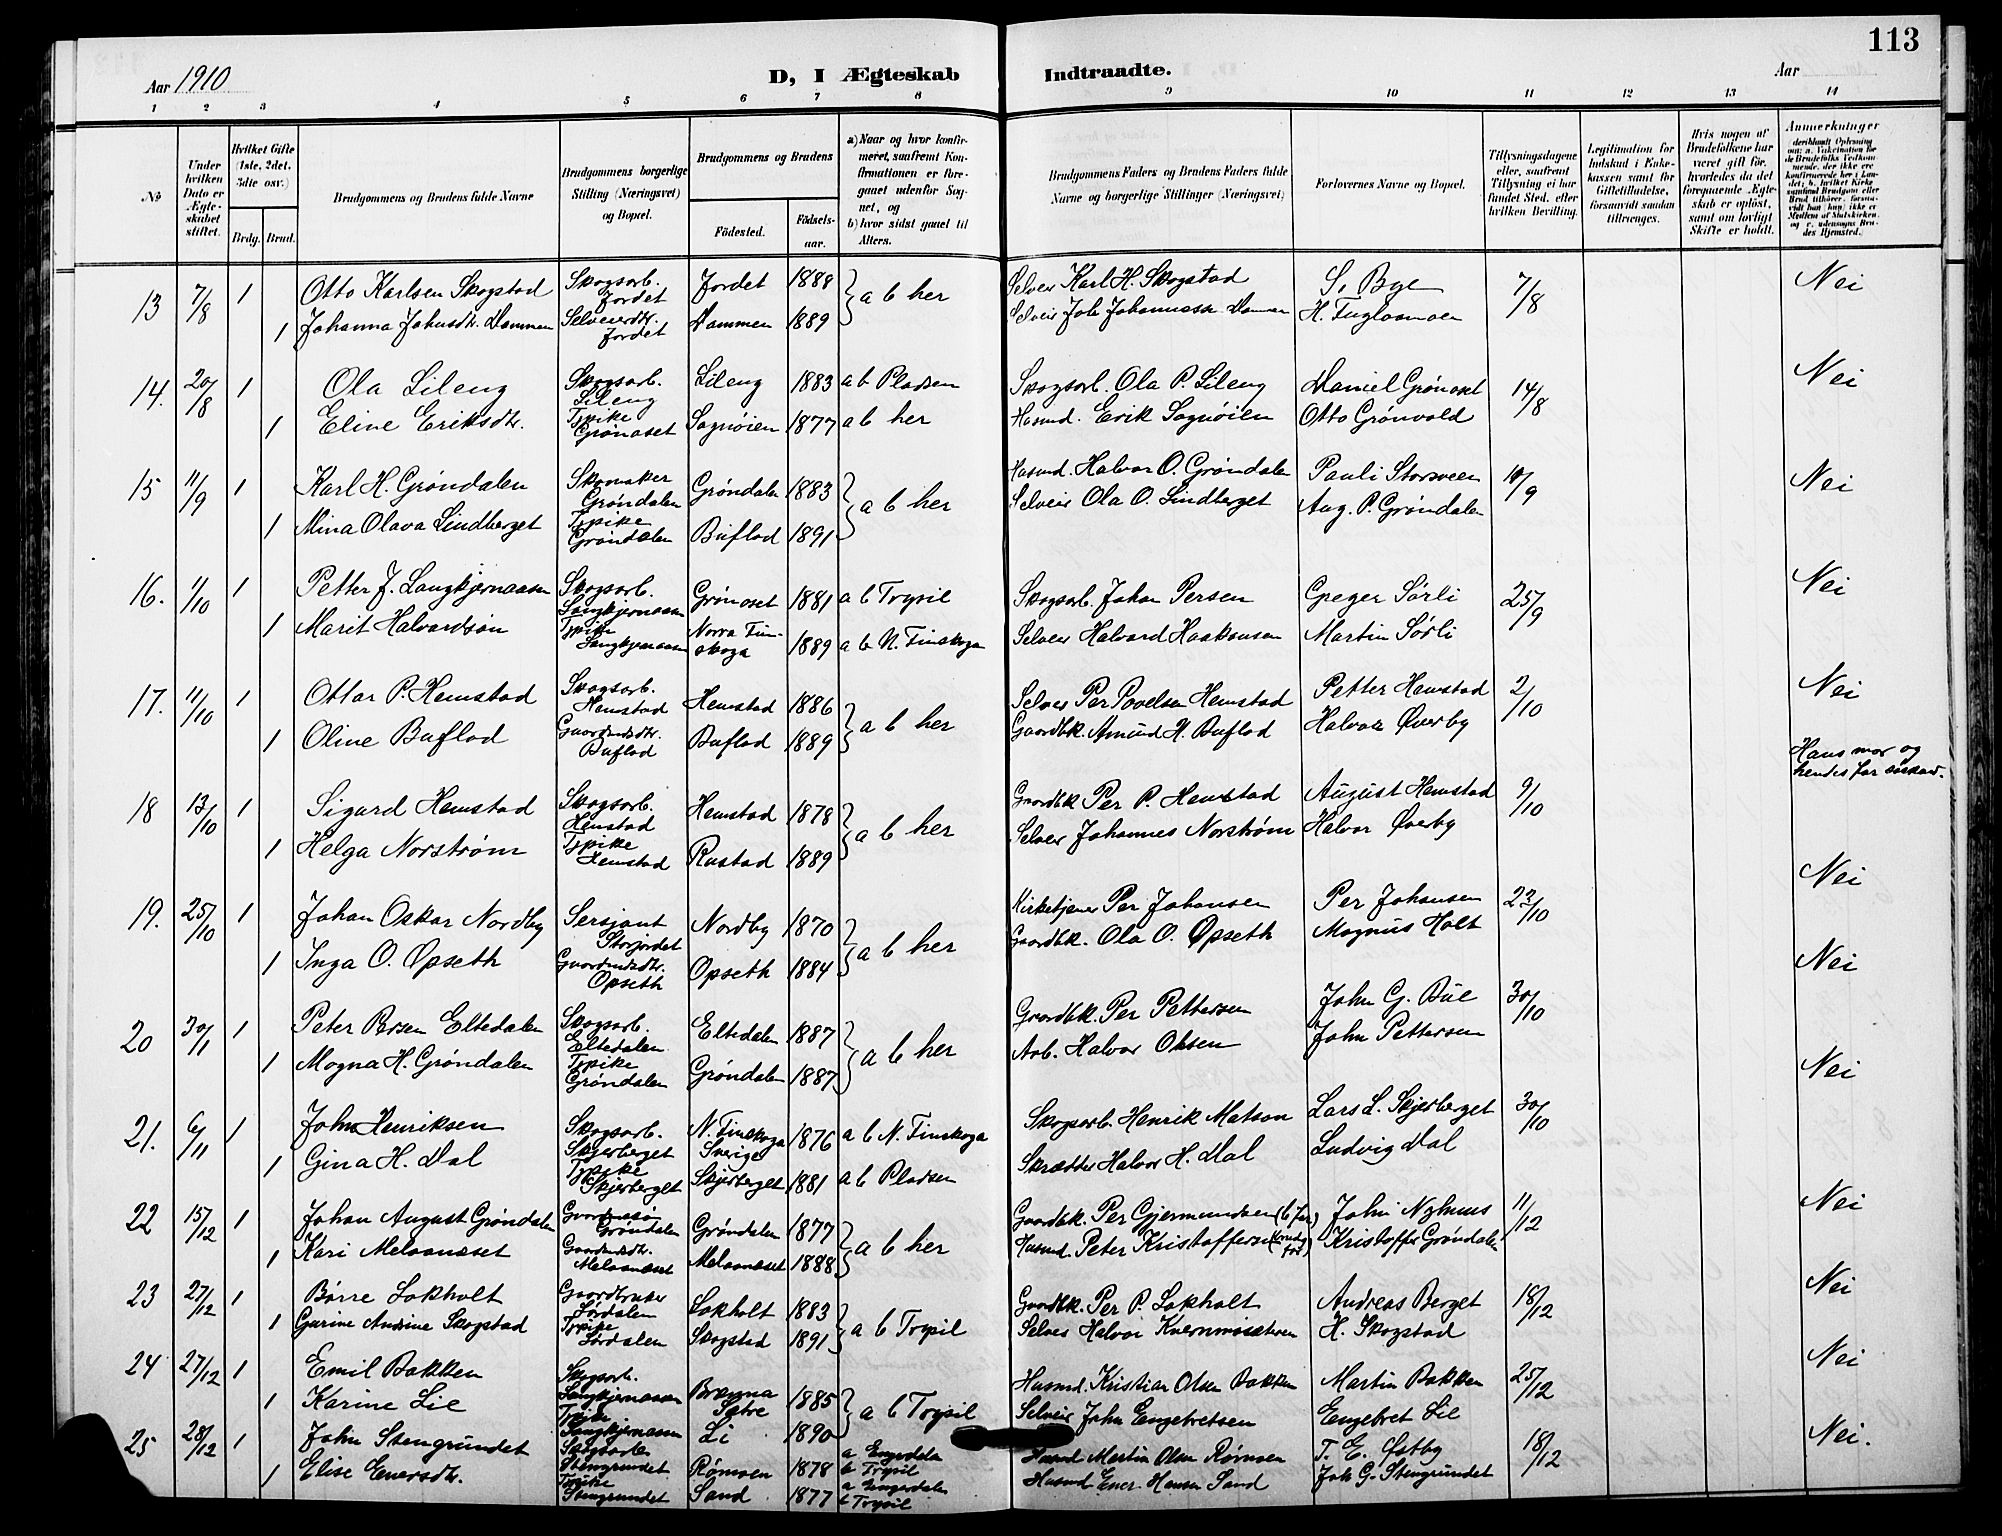 113
Aar 1910
D, I Ægteskab Indtraadte.
Aar
1 2 3 4 5 6 7 8 9 10 11 12 13 14
No
Under hvilken Dato er Ægteskabet stiftet.
Hvilket Gifte (1ste, 2det, 3die osv.)
Brdg. Brud.
Brudgommens og Brudens fulde Navne
Brudgommens borgerlige Stilling (Næringsvei) og Bopæl.
Brudgommens og Brudens
Fødested.
Fødselsaar.
a) Naar og hvor konfirmeret, saafremt Konfirmationen er foregaaet udenfor Sognet, og
b) hvor sidst gaaet til Alters.
Brudgommens Faders og Brudens Faders fulde Navne og borgerlige Stillinger (Næringsvei)
Forlovernes Navne og Bopæl.
Tillysningsdagene eller, saafremt Tillysning ei har fundet Sted, efter hvilken Bevilling.
Legitimation for Indskud i Enkekassen samt for Giftetilladelse, forsaavidt saadan tiltrænges.
Hvis nogen af Brudefolkene har været gift før, hvorledes da det foregaaende Ægteskab er opløst, samt om lovligt Skifte er holdt.
Anmerkninger
13 7/8 1 Otto Karlsen Skogstad Skogsarb. Jordet Jordet 1888 a b her Selveier Karl H. Skogstad S. Bye 7/8 Nei
1 Johanna Johusdtr. Dammen Selveierdtr. Jordet Dammen 1889 Selveier Joh Johannessen Dammen H. Fuglaamoen
14. 20/8 1 Ola Lileng Skogsarb. Lileng Lileng 1883 a b Pladsen Skogsarb. Ola P. Lileng Daniel Grønoset 14/8 Nei
1 Eline Eriksdtr. Tpike Grønoset Sagnøien 1877 a b her Husmd. Erik Sagnøien Otto Grønvold
15 11/9 1 Karl H. Grøndalen Skomaker Grøndalen Grøndalen 1883 a b her Husmd. Halvor O. Grøndalen Pauli Storsveen 10/9 Nei
1 Mina Olava Lindberget Tpike Grøndalen Buflod 1891 Selveier Ola O. Lindberget Aug. P. Grøndalen
16. 1/10 1 Petter J. Langkjernaasen Skogsarb. Langkjernaasen Grønoset 1881 a b Trysil Skogsarb. Johan Persen Greger Sørli 25/9 Nei
1 Marit Halvardsøn Tpike Langkjernaasen Norra Finskoga 1889 a b N. Finskoga Selveier Halvard Haakonsen Martin Sørli
17. 11/10 1 Ottar P. Hemstad Skogsarb. Hemstad Hemstad 1886 a b her Selveier Per Povelsen Hemstad Petter Hemstad 2/10 Nei
1 Oline Buflod Gaardmdsdtr. Buflod Buflod 1889 Gaardbk. Amund H. Buflod Halvor Øverby
Hans mor og hendes far
18 13/10 1 Sigurd Hemstad Skogsarb. Hemstad Hemstad 1878 a b her Gaardbk Per P. Hemstad August Hemstad 9/10
1 Helga Norstrøm Tpike Hemstad Rustad 1889 Selveier Johannes Norstrøm Halvor Øverby
Nei
19. 25/10 1 Johan Oskar Nordby Sersjant Storjordet Nordby 1870 a b her Kirketjener Per Johansen Per Johansen 22/10
1 Inga O. Opseth Gaardmdsdtr. Opseth Opseth 1884 Gaardbk. Ola O. Opseth Magnus Holt
Nei
20 30/1 1 Peter Persen Eltedalen Skogsarb. Eltedalen Eltedalen 1887 a b her Gaardbk. Per Pettersen John G. Bue 30/10
1 Mogna H. Grøndalen Tpike Grøndalen Grøndalen 1887 Arb. Halvor Olsen John Pettersen
Nei
21. 6/11 1 John Henriksen Skogsarb. Skjerberget N. Finskoga Sverige 1876 a b N. Finskoga Skogsarb. Henrik Matson Lars L. Skjerberget 30/10
1 Gina H. Dal Tpike Skjerberget Skjerberget 1881 a b Pladsen Skrædder Halvor H. Dal Ludvig Dal
22 15/12 1 Johan August Grøndalen Grøndalen Grøndalen 1877 a b her Gaardbk. Per Gjermundsen John Nyhuus 11/12 Nei
1 Kari Meloanæset Gaardmdsdtr. Meloanæset Meloanæset 1888 Husmd. Peter Kristoffersen Kristoffer Grøndalen
23 27/12 1 Børre Lokholt Gaardbruker Lørdalen Lokholt 1883 a b Trysil Gaardbk. Per P. Lokholt Andreas Berget 18/12 Nei
1 Gurine Andrine Skogstad Tpike Lørdalen Skogstad 1891 Selveier Halvor Kvernmosæteren H. Skogstad
24 27/12 1 Emil Bakken Skogsarb. Langkjernaasen Brænna Sætre 1885 a b Trysil Husmd. Kristian Olsen Bakken Martin Bakken 25/12 Nei
1 Karine Lie Tpike Langkjernaasen Li 1890 Selveier John Engebretsen Engebret Lie
25 28/12 1 John Stengrundet Skogsarb. Stengrundet Rømoen 1878 a Engerdalen b Trysil Husmd Martin Olsen Rømoen T. E. Østby 18/12 Nei.
1 Elise Enersdtr. Tpike Stengrundet Sand 1877 a Engerdalen b Trysil Husmd Ener Hansen Sand Joh G. Stengrundet